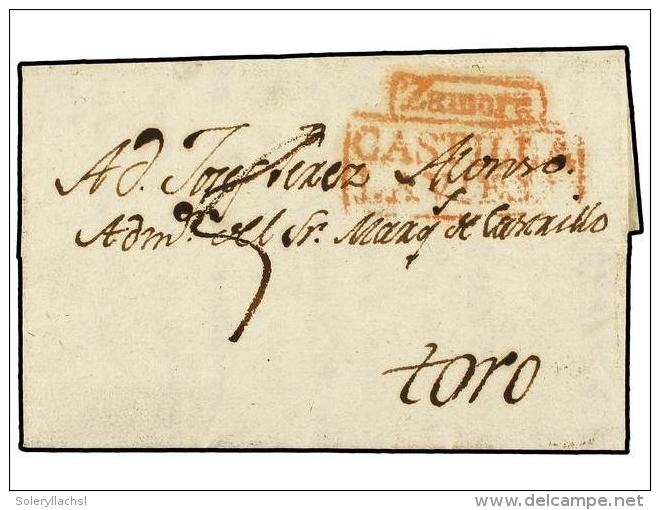 Zamora
CASTILLA
A d. Josef Perez Alonso.
Adm.or del Sr. Marq.s de Castrillo
toro
Soleryllachsl
delcampe.net